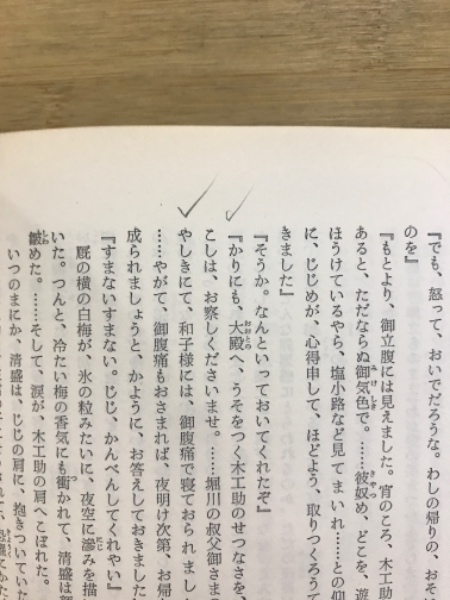 『でも、怒って、おいでだろうな。わしの帰りの、おそ
のを』
『もとより、御立腹には見えました。宵のころ、木工助
あると、ただならぬ御気色で。……彼奴め、どこを、遊
ほうけているやら、塩小路など見てまいれ……との仰
に、じじめが、心得申して、ほどよう、取りつくろうて
きました』
『そうか。なんといっておいてくれたぞ』
『かりにも、大殿へ、うそをつく木工助のせつなさを、
こしは、お察しくださいませ。……堀川の叔父御さま
やしきにて、和子様には、御腹痛で寝ておられまし
……やがて、御腹痛もおさまれば、夜明け次第、お帰
成られましょうと、かように、お答えしておきました
『すまないすまない。じじ、かんべんしてくれやい』
厩の横の白梅が、氷の粒みたいに、夜空に滲みを描
いた。つんと、冷たい梅の香気にも衝かれて、清盛は
皺めた。……そして、涙が、木工助の肩へこぼれた。
いつのまにか、清盛は、じじの肩に、抱きついていた